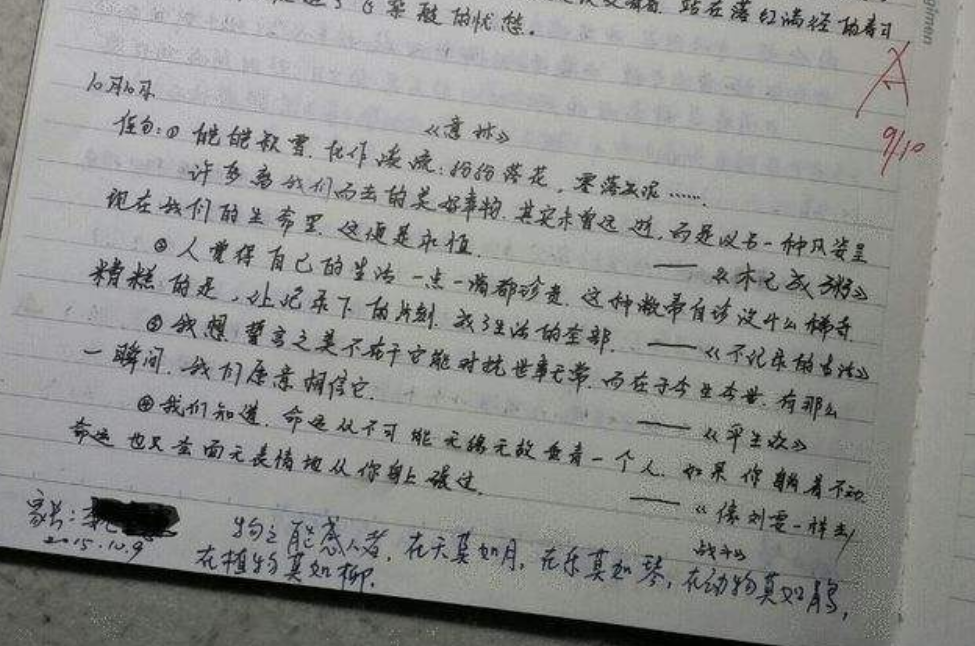 的忧愁。
站在落红满径的
giman
A
9/10
10月10日
《意林》
佳句:① 皑皑积雪,化作凌流;纷纷落花,零落为泥……
许多离我们而去的美好事物,其实未曾远逝,而是以另一种风姿呈
现在我们的生命里,这便是永恒。 ——《木已成粥》
② 人觉得自己的生活一点一滴都珍贵,这种敝帚自珍没什么稀奇
精糕的是,让记录下的片刻,成了生活的全部。 ——《不记录的生活》
③ 我想,誓言之美不在于它能对抗世事无常,而在于今生今世,有那么
一瞬间,我们愿意相信它。 ——《平生欢》
④ 我们知道,命运从不可能无缘无故垂青一个人,如果你躺着不动
命运也只会面无表情地从你身上碾过。 ——《像刘雯一样去
战斗》
家长:李
2015.10.9
物之能感人者,在天莫如月,在乐莫如琴,在动物莫如鹃,
在植物莫如柳。